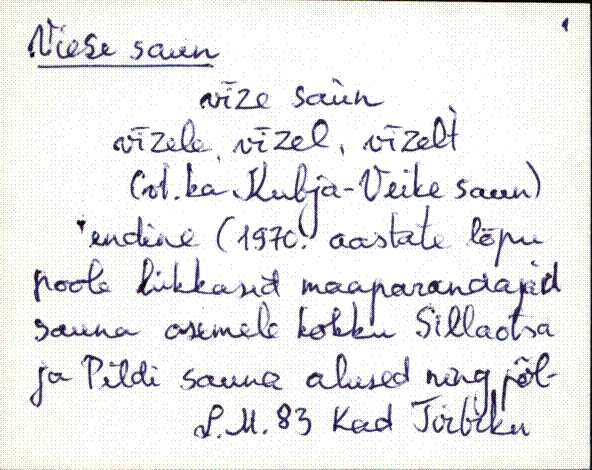 Viese saun
1
vīze saùn
vīzele, vīzel, vīzelt̀
(vt. ka Kubja-Veike saun)
endine (1970. aastate lõpu
poole lükkasid maaparandajad
sauna asemele kokku Sillaotsa
ja Pildi sauna alused ning põl-
L.M. 83 Kad